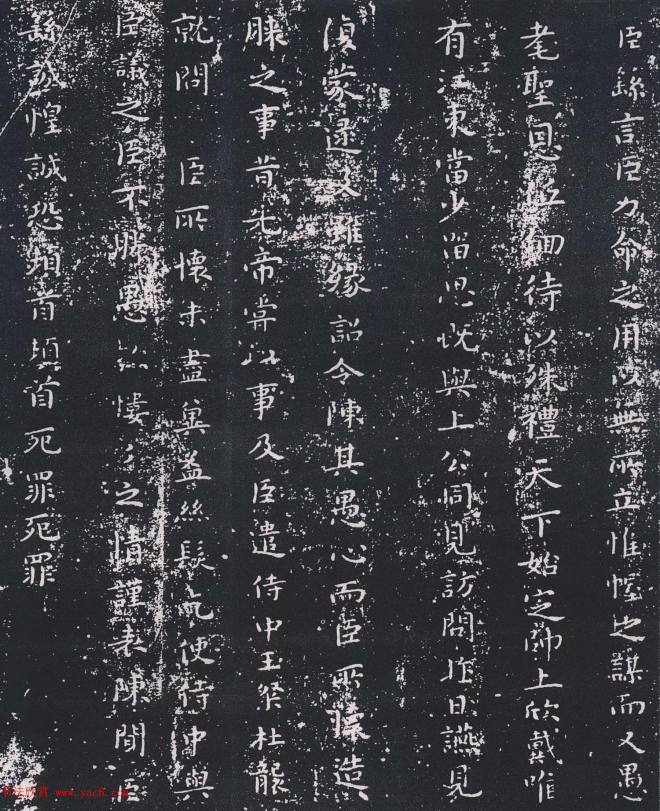 臣繇言臣力命之用以無所立惟幄之謀而又愚
耄聖恩低佪待以殊禮天下始定師士欣戴唯
有江東當少留思既與上公同見訪問昨日讌見
蒙逮及雖緣詔令陳其愚心而臣所懷造
膝之事昔先帝嘗以事及臣遣侍中王粲杜襲
就問 臣所懷未盡冀益絲髮乞使侍中與
臣議之臣不勝愚款慺々之情謹表陳聞臣
繇誠惶誠恐頓首頓首死罪死罪
书法欣赏 www.yac8.com